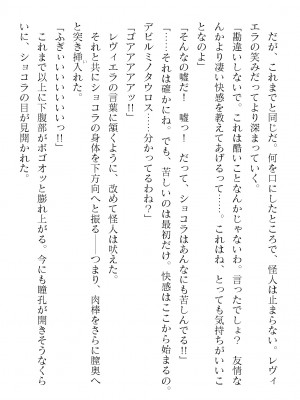 だが、これまでと同じだ。何を口にしたところで、怪人は止まらない。レヴィ
エラの笑みだってより深まっていく。
「勘違いしないで。これは酷いことなんかじゃないわ。言ったでしょ？　友情な
んかより凄い快感を教えてあげるって……。これはね、とっても気持ちがいいこ
となのよ」
「そんなの嘘だ！　嘘っ！　だって、ショコラはあんなにも苦しんでる‼」
「……それは確かにね。でも、苦しいのは最初だけ。快感はここから始まるの。
デビルミノタウロス……分かってるわね？」
「ゴアアアアアッ‼」
　レヴィエラの言葉に頷くように、改めて怪人は吠えた。
　それと共にショコラの身体を下方向へと振る――つまり、肉棒をさらに膣奥へ
と突き挿入れた。
「ふぎぃいいいいいいっ‼」
　これまで以上に下腹部がボゴオッと膨れ上がる。今にも瞳孔が開きそうなくら
いに、ショコラの目が見開かれた。